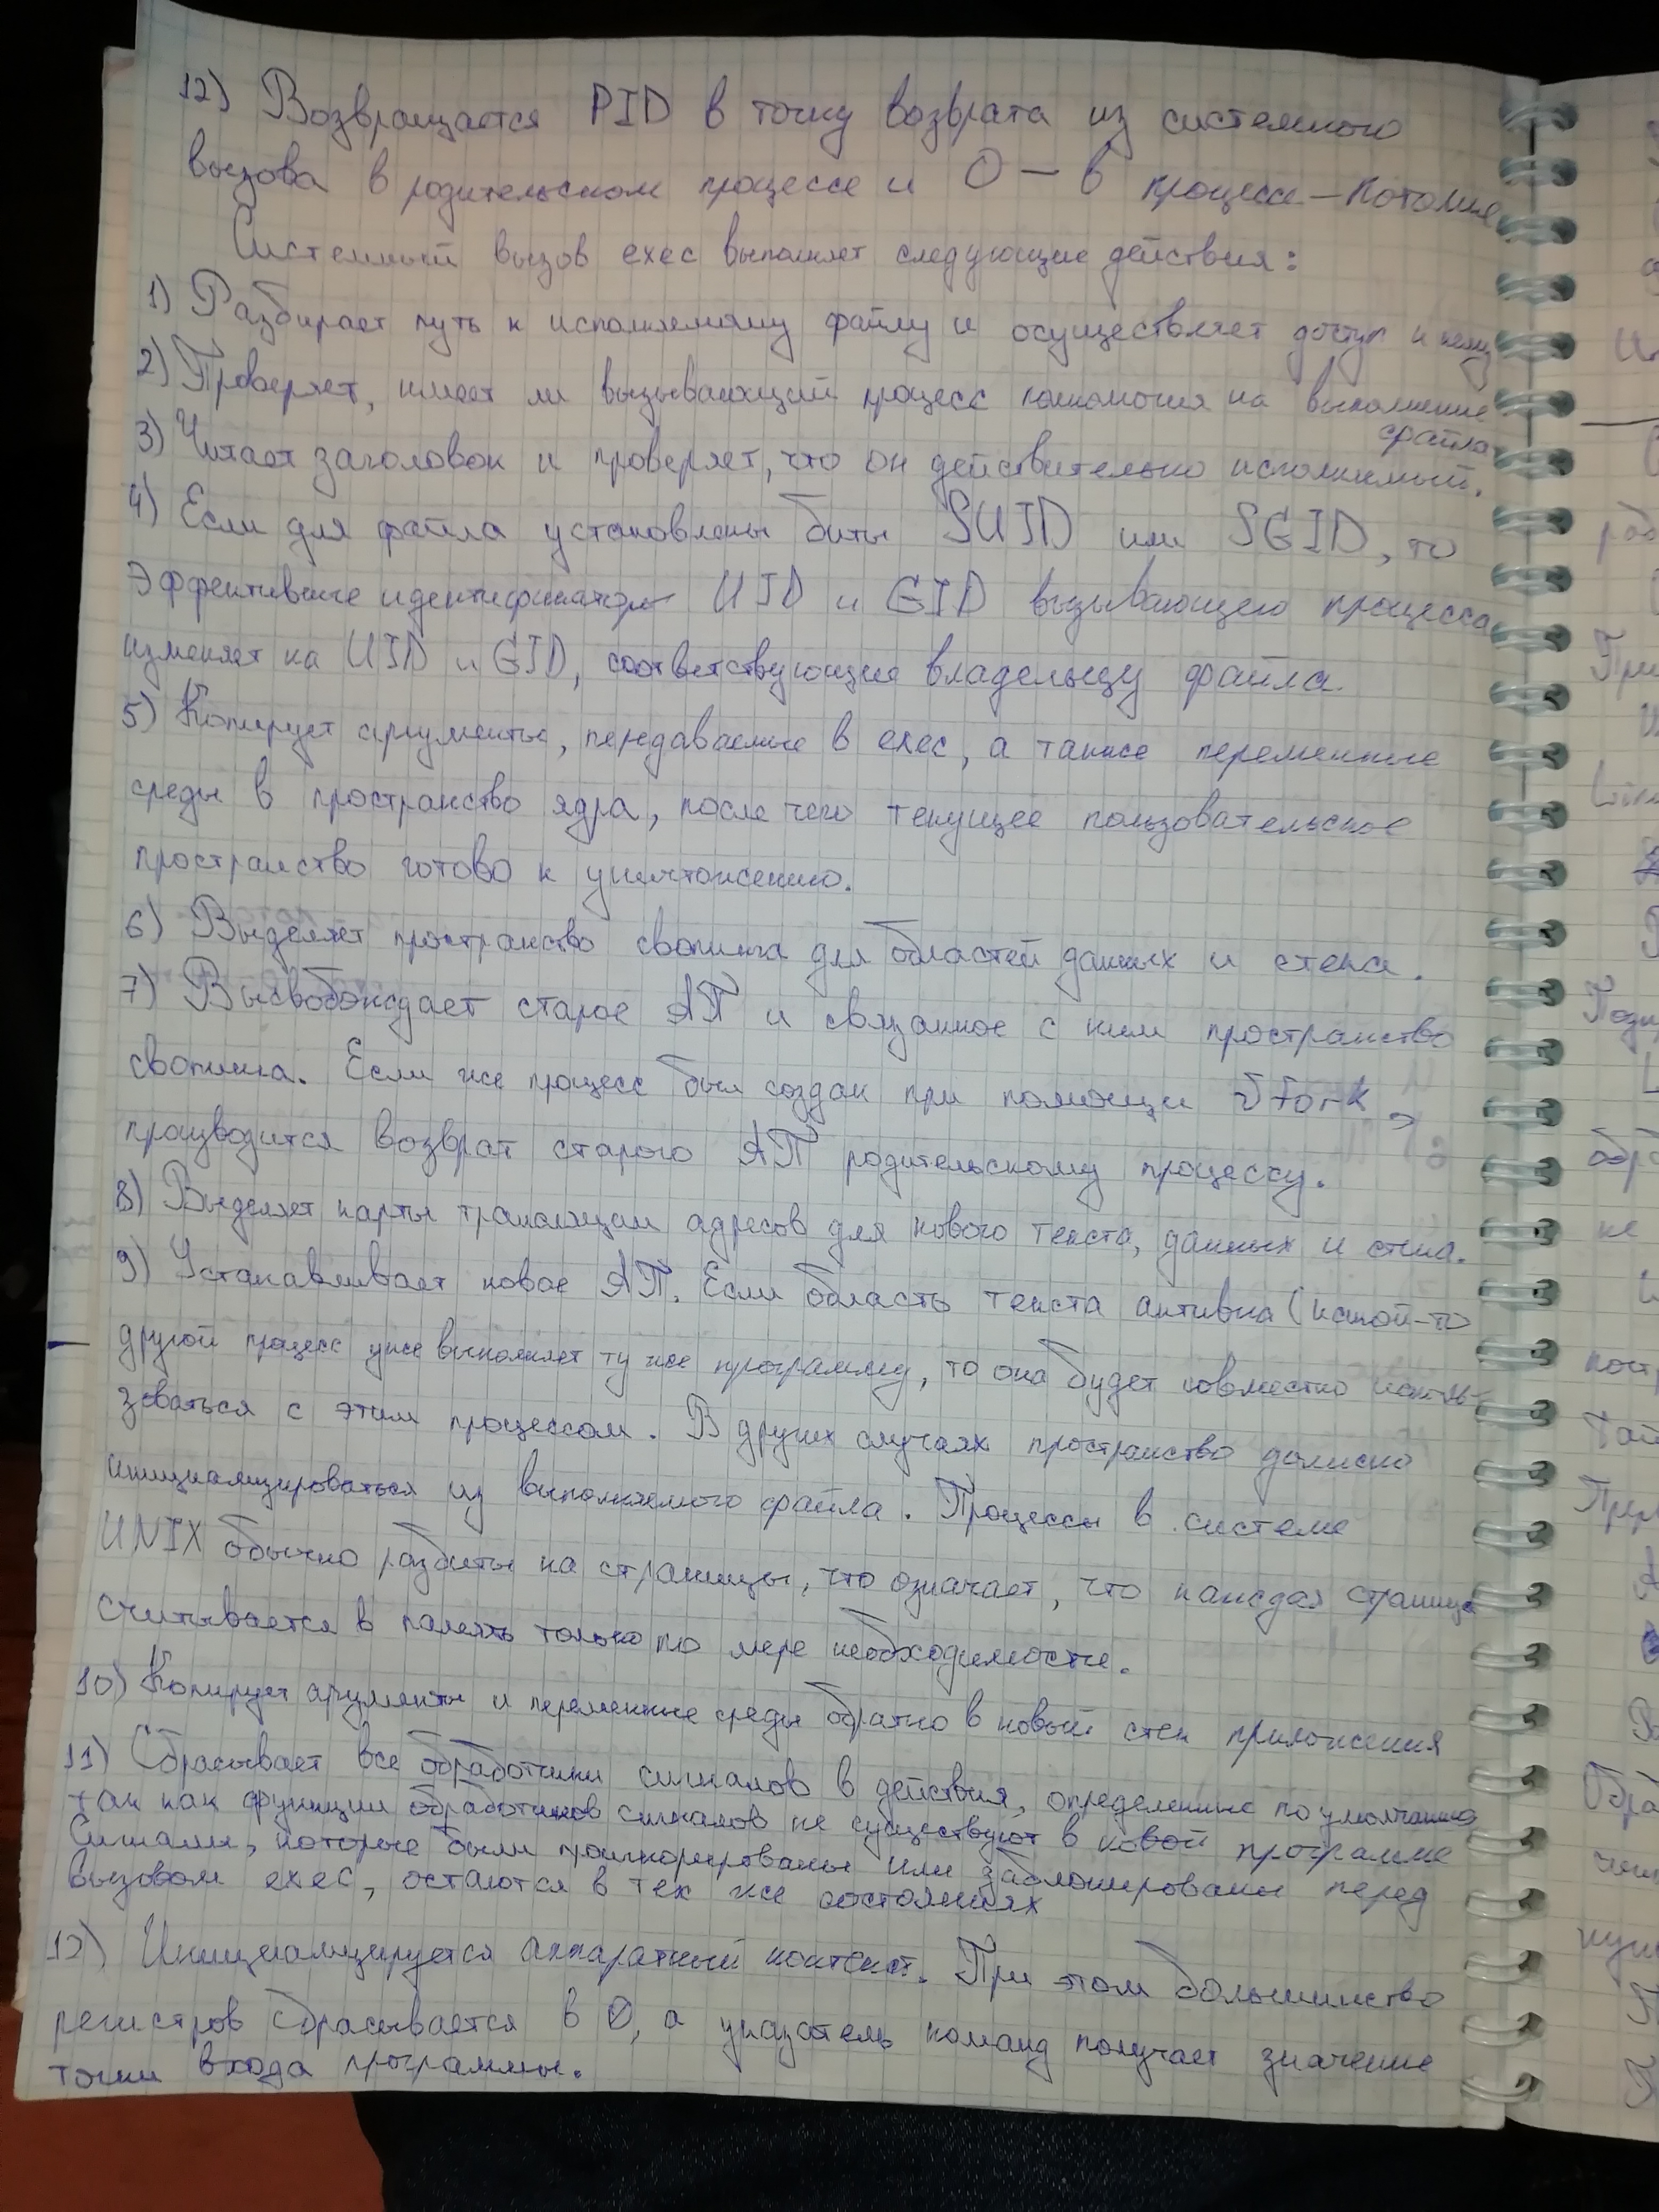 12) Возвращается PID в точку возврата из системного
вызова в родительском процессе и 0 — в процессе-потомке
Системный вызов exec выполняет следующие действия:
1) Разбирает путь к исполняемому файлу и осуществляет доступ к нему
2) Проверяет, имеет ли вызывающий процесс полномочия на выполнение
файла.
3) Читает заголовок и проверяет, что он действительно исполняемый.
4) Если для файла установлены биты SUID или SGID, то
эффективные идентификаторы UID и GID вызывающего процесса
изменяет на UID и GID, соответствующие владельцу файла.
5) Копирует аргументы, передаваемые в exec, а также переменные
среды в пространство ядра, после чего текущее пользовательское
пространство готово к уничтожению.
6) Выделяет пространство свопинга для областей данных и стека.
7) Высвобождает старое АП и связанное с ним пространство
свопинга. Если же процесс был создан при помощи vfork,
производится возврат старого АП родительскому процессу.
8) Выделяет карты трансляции адресов для нового текста, данных и стека.
9) Устанавливает новое АП. Если область текста активна (какой-то
другой процесс уже выполняет ту же программу, то она будет совместно исполь-
зоваться с этим процессом. В других случаях пространство должно
инициализироваться из выполняемого файла. Процессы в системе
UNIX обычно разбиты на страницы, что означает, что каждая страница
считывается в память только по мере необходимости.
10) Копирует аргументы и переменные среды обратно в новый стек приложения
11) Сбрасывает все обработчики сигналов в действия, определенные по умолчанию
так как функции обработчиков сигналов не существуют в новой программе
Сигналы, которые были проигнорированы или заблокированы перед
вызовом exec, остаются в тех же состояниях
12) Инициализируется аппаратный контекст. При этом большинство
регистров сбрасывается в 0, а указатель команд получает значение
точки входа программы.